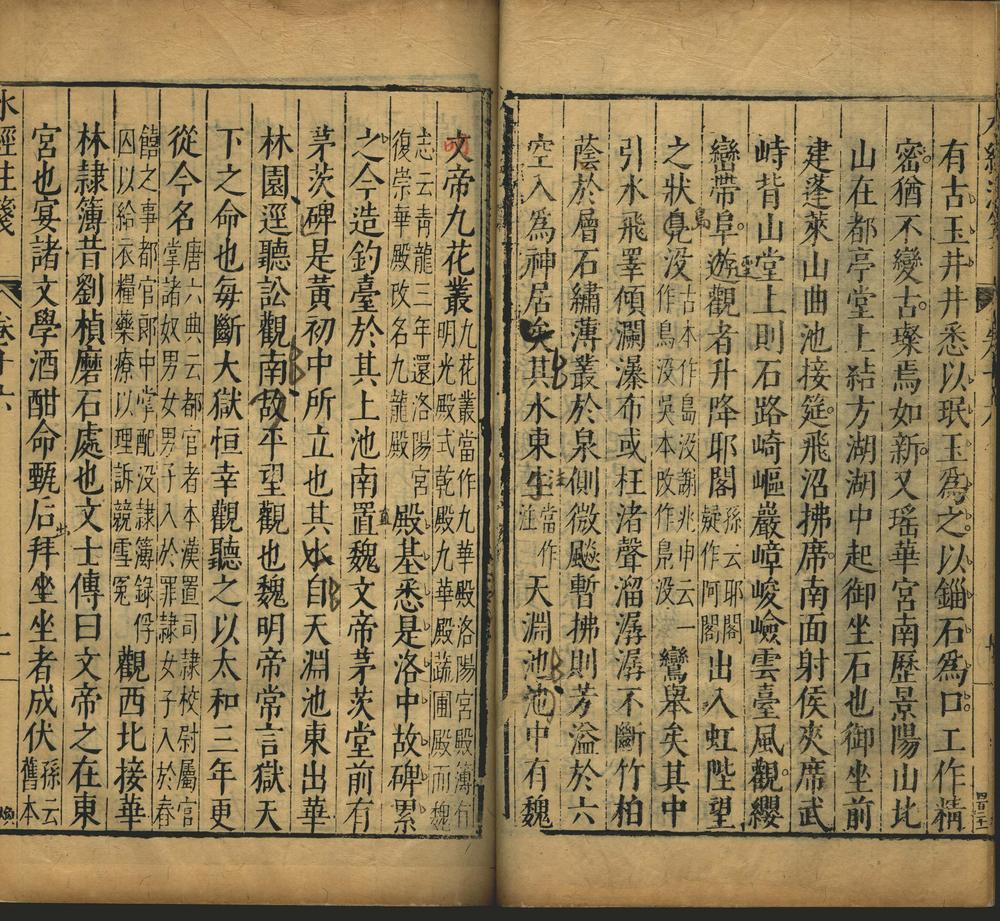 有古玉井井悉以珉玉爲之以錙石爲口工作精
密猶不變古璨焉如新又瑤華宮南歷景陽山比
山在都亭堂上結方湖湖中起御坐石也御坐前
建蓬萊山曲池接筵飛沼拂席南面射侯夾席武
峙背山堂上則石路崎嶇嚴嶂峻嶮雲臺風觀纓
巒帶阜遊觀者升降耶閣孫云耶閣疑作阿閣出入虹陛望
之狀鳧没古本作島没謝兆申云一作鳥没吳本改作鳧没鸞舉矣其中
引水飛睪傾瀾瀑布或枉渚聲溜潺潺不斷竹柏
蔭於層石繡薄叢於泉側微飈暫拂則芳溢於六
空入爲神居矣其水東生當作注天淵池池中有魏
文帝九花叢九花叢當作九華殿洛陽宮殿簿有明光殿式乾殿九華殿蔬圃殿而魏
志云青龍三年還洛陽宮復崇華殿改名九龍殿殿基悉是洛中故碑累
之今造釣臺於其上池南置魏文帝茅茨堂前有
茅茨碑是黃初中所立也其水自天淵池東出華
林園逕聽訟觀南故平望觀也魏明帝常言獄天
下之命也每斷大獄恒幸觀聽之以太和三年更
從今名唐六典云都官者本漢置司隸校尉屬官堂諸奴男女男子入於罪隸女子入於舂
饎之事都官郎中掌配没隸簿錄俘囚以給衣糧藥療以理訴競雪冤觀西北接華
林隷簿昔劉楨磨石處也文士傳曰文帝之在東
宮也宴諸文學酒酣命甄后拜坐坐者成伏孫云舊本
水經注箋
卷十六
十一